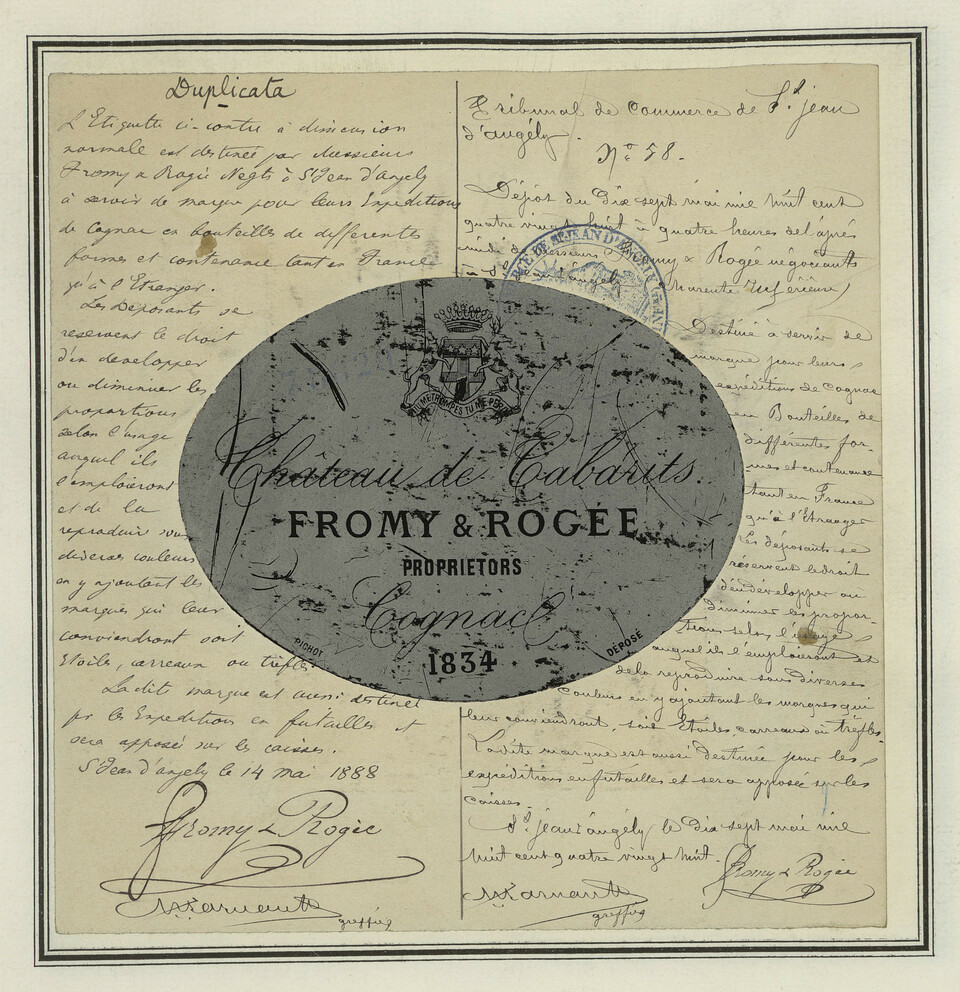 Duplicata
L'Etiquette ci-contre à dimension
normale est destinée par Messieurs
Fromy & Rogée Negts à St Jean d'Angely
à servir de marque pour leurs Expeditions
de Cognac en bouteilles de differentes
formes et contenance tant en France
qu'à l'Etranger.
Les Deposants se
reservent le droit
d'en developper
ou diminuer les
proportions
selon l'usage
auquel ils
l'emploieront
et de la
reproduire sous
diverses couleurs
en y ajoutant les
marques qui leur
conviendront soit
Etoiles, carreaux ou trefles.
La dite marque est aussi destinée
pr les Expeditions en futailles et
sera apposé sur les caisses.
St Jean d'angely le 14 mai 1888
Fromy & Rogée
greffier
Tribunal de Commerce de St jean
d'angély.
No 58.
Dépôt du dix sept mai mil huit cent
quatre vingt huit à quatre heures de l'après
midi de Messieurs Fromy & Rogée négociants
à St Jean d'angély Charente Inférieure)
Destiné à servir de
marque pour leurs
expéditions de Cognac
en Bouteilles de
différentes for-
mes et contenance
tant en France
qu'à l'Etranger
Les déposants se
réservent le droit
d'en développer ou
diminuer les propor-
tions selon l'usage
auquel ils l'emploieront et
de la reproduire sous diverses
couleurs en y ajoutant les marques qui
leur conviendront, soit Etoiles, carreaux ou trèfles.
Ladite marque est aussi destinée pour les
expéditions en futailles et sera apposé sur les
caisses.
St jean d'angély le dix sept mai mil
huit cent quatre vingt huit.
Fromy & Rogée
greffier
DE ST JEAN D'ANGÉLY
TU ME TROMPES TU ME PER
Château de Cabarits.
FROMY & ROGÉE
PROPRIETORS
Cognac
1834
PICHOT
DÉPOSÉ